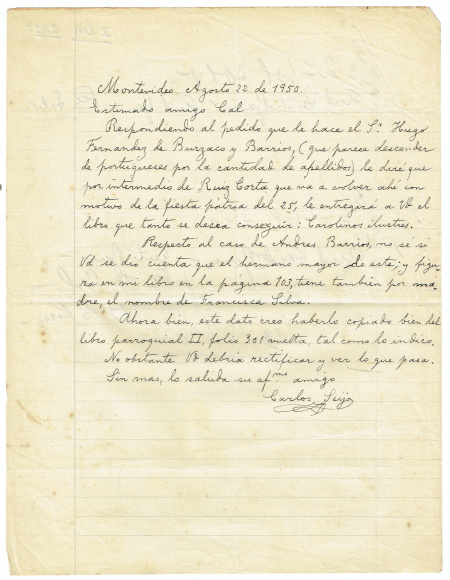 Montevideo, Agosto 22 de 1950.
Estimado amigo Cal
Respondiendo al pedido que le hace el Sr. Hugo
Fernandez de Burzaco y Barrios, (que parece descender
de portugueses por la cantidad de apellidos) le diré que
por intermedio de Ruiz Cortá que va a volver ahí con
motivo de la fiesta pátria del 25, le entregará a Vd el
libro que tanto se desea conseguir: Carolinos ilustres.
Respecto al caso de Andres Barrios, no sé si
Vd se dió cuenta que el hermano mayor de este; y figu-
ra en mi libro en la página 103, tiene también por ma-
dre, el nombre de Francisca Silva.
Ahora bien, este dato creo haberlo copiado bien del
libro parroquial II, folio 301 vuelta, tal como lo indico.
No obstante Vd debria rectificar y ver lo que pasa.
Sin mas, lo saluda su af.mo amigo
Carlos Seijo